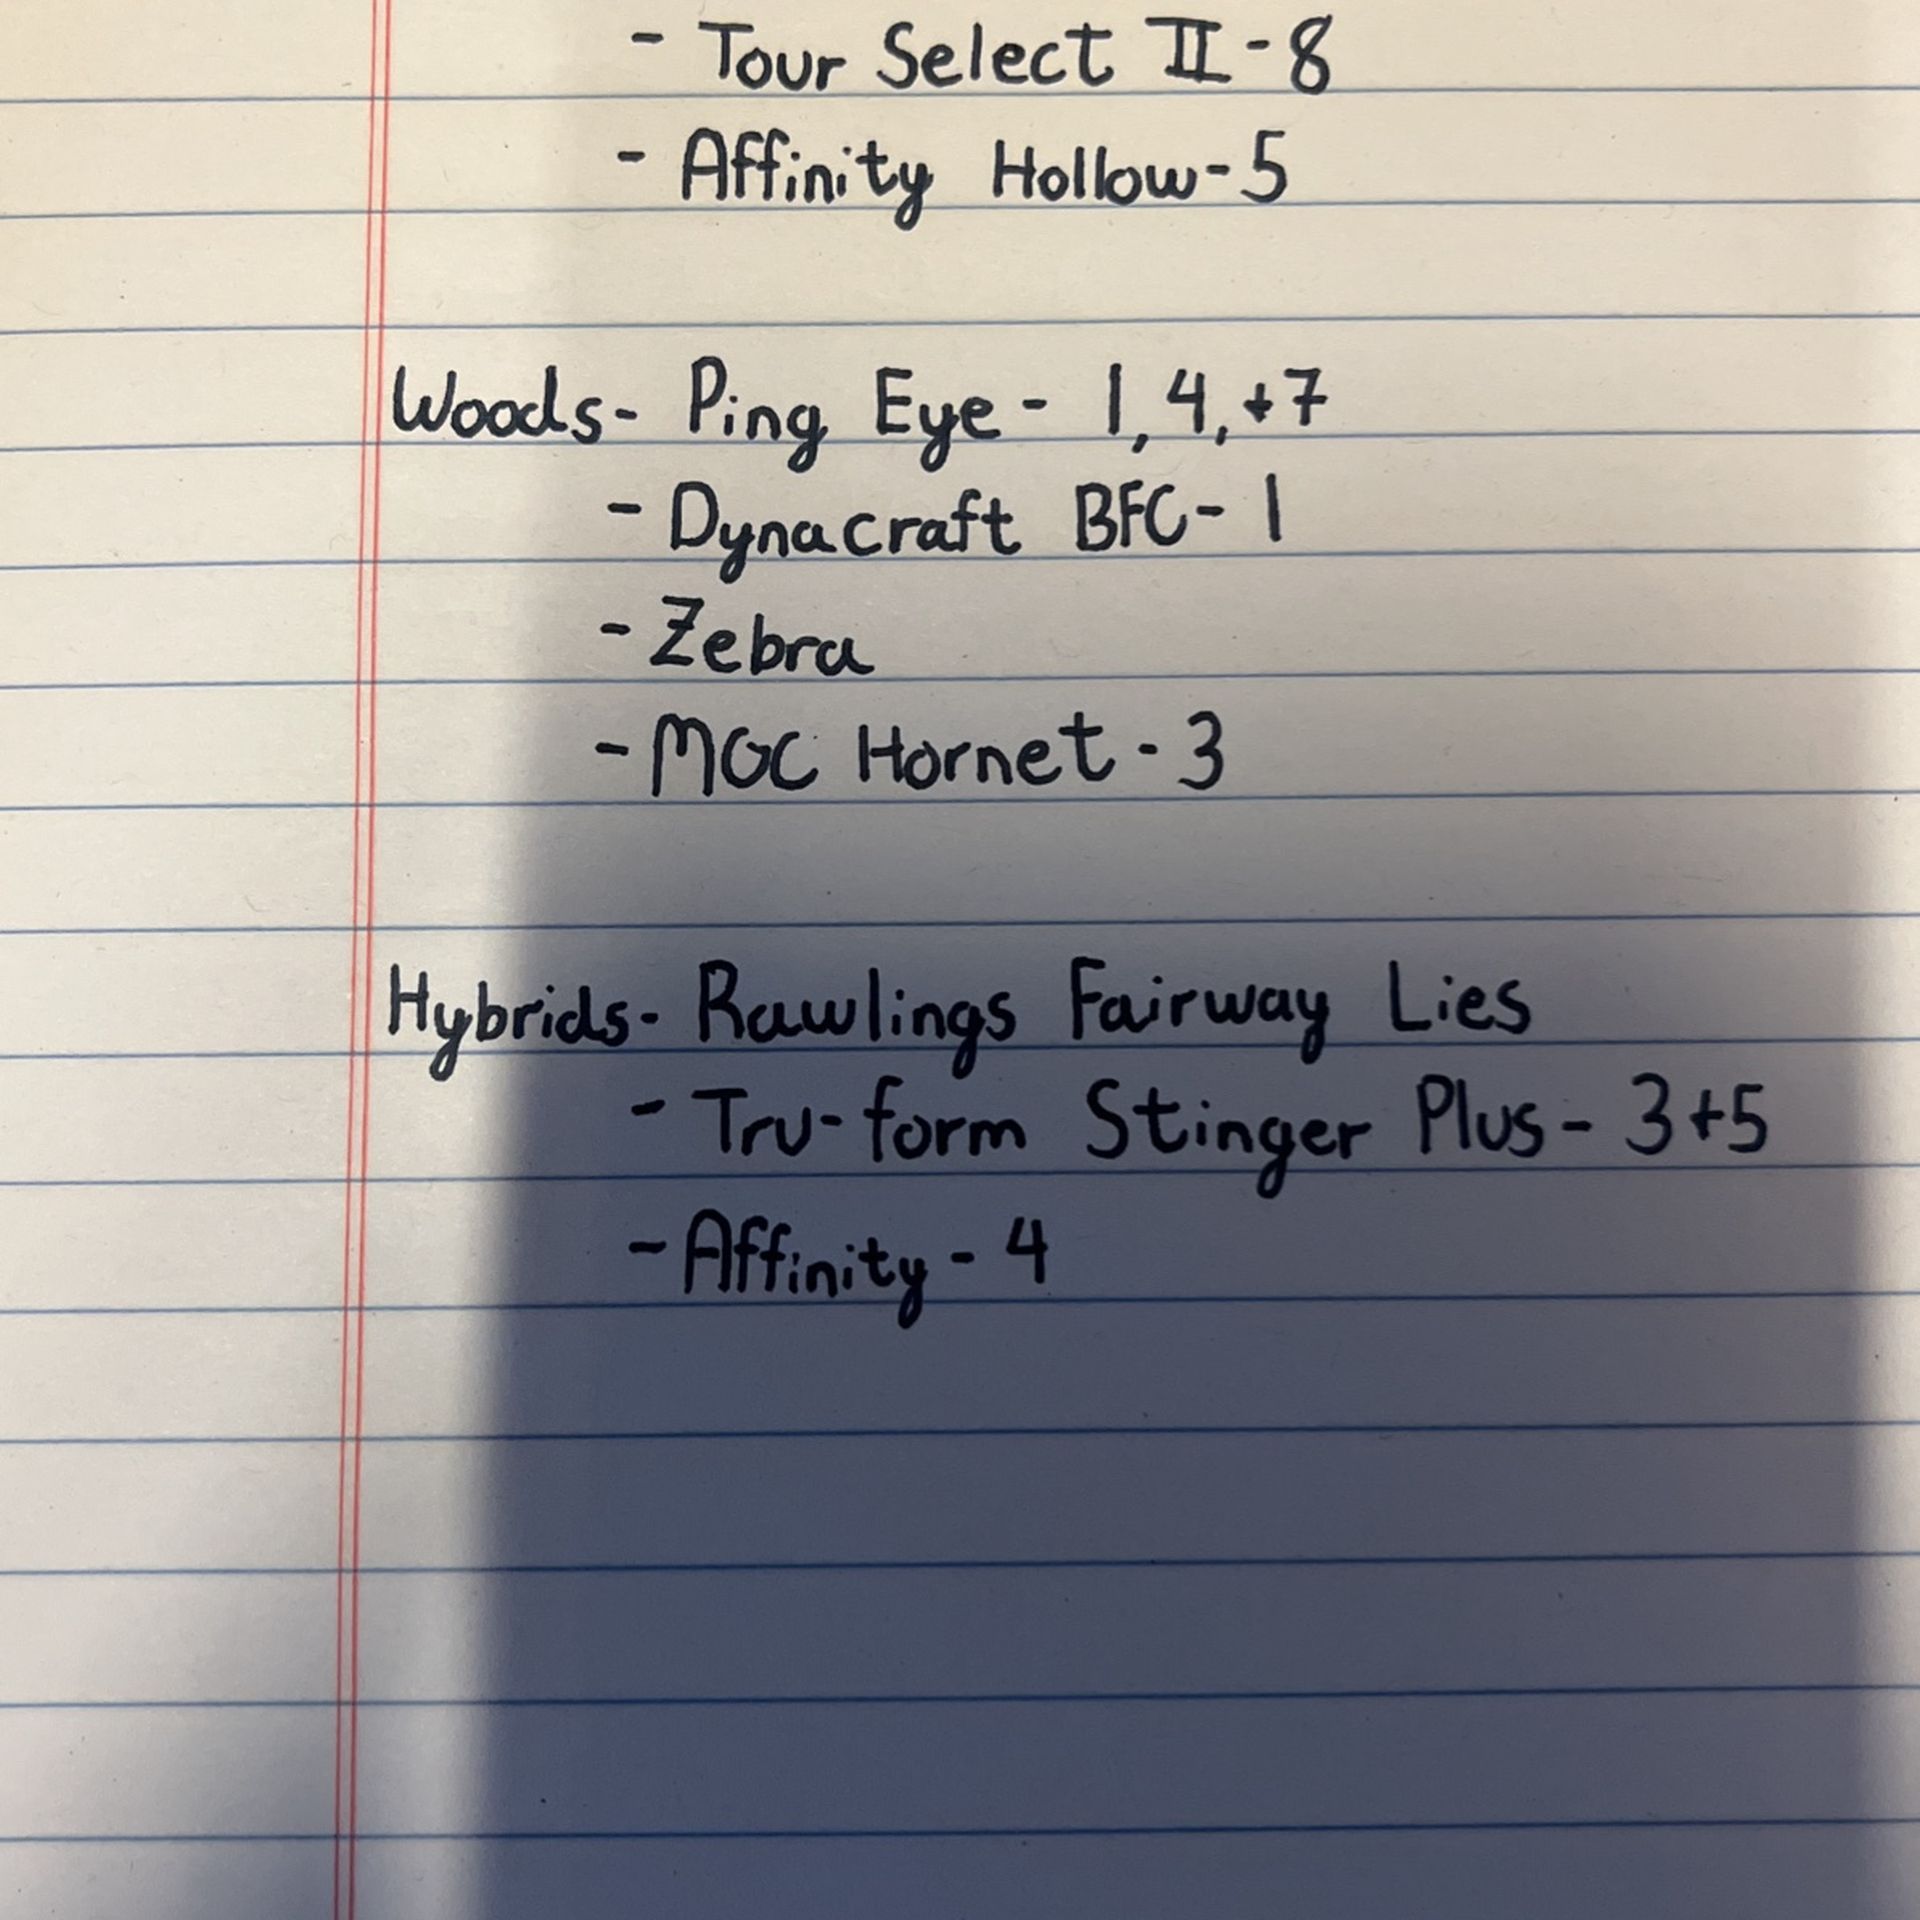 - Tour Select II - 8
- Affinity Hollow - 5
Woods - Ping Eye - 1, 4, +7
- Dynacraft BFC - 1
- Zebra
- MGC Hornet - 3
Hybrids - Rawlings Fairway Lies
- Tru-form Stinger Plus - 3+5
- Affinity - 4